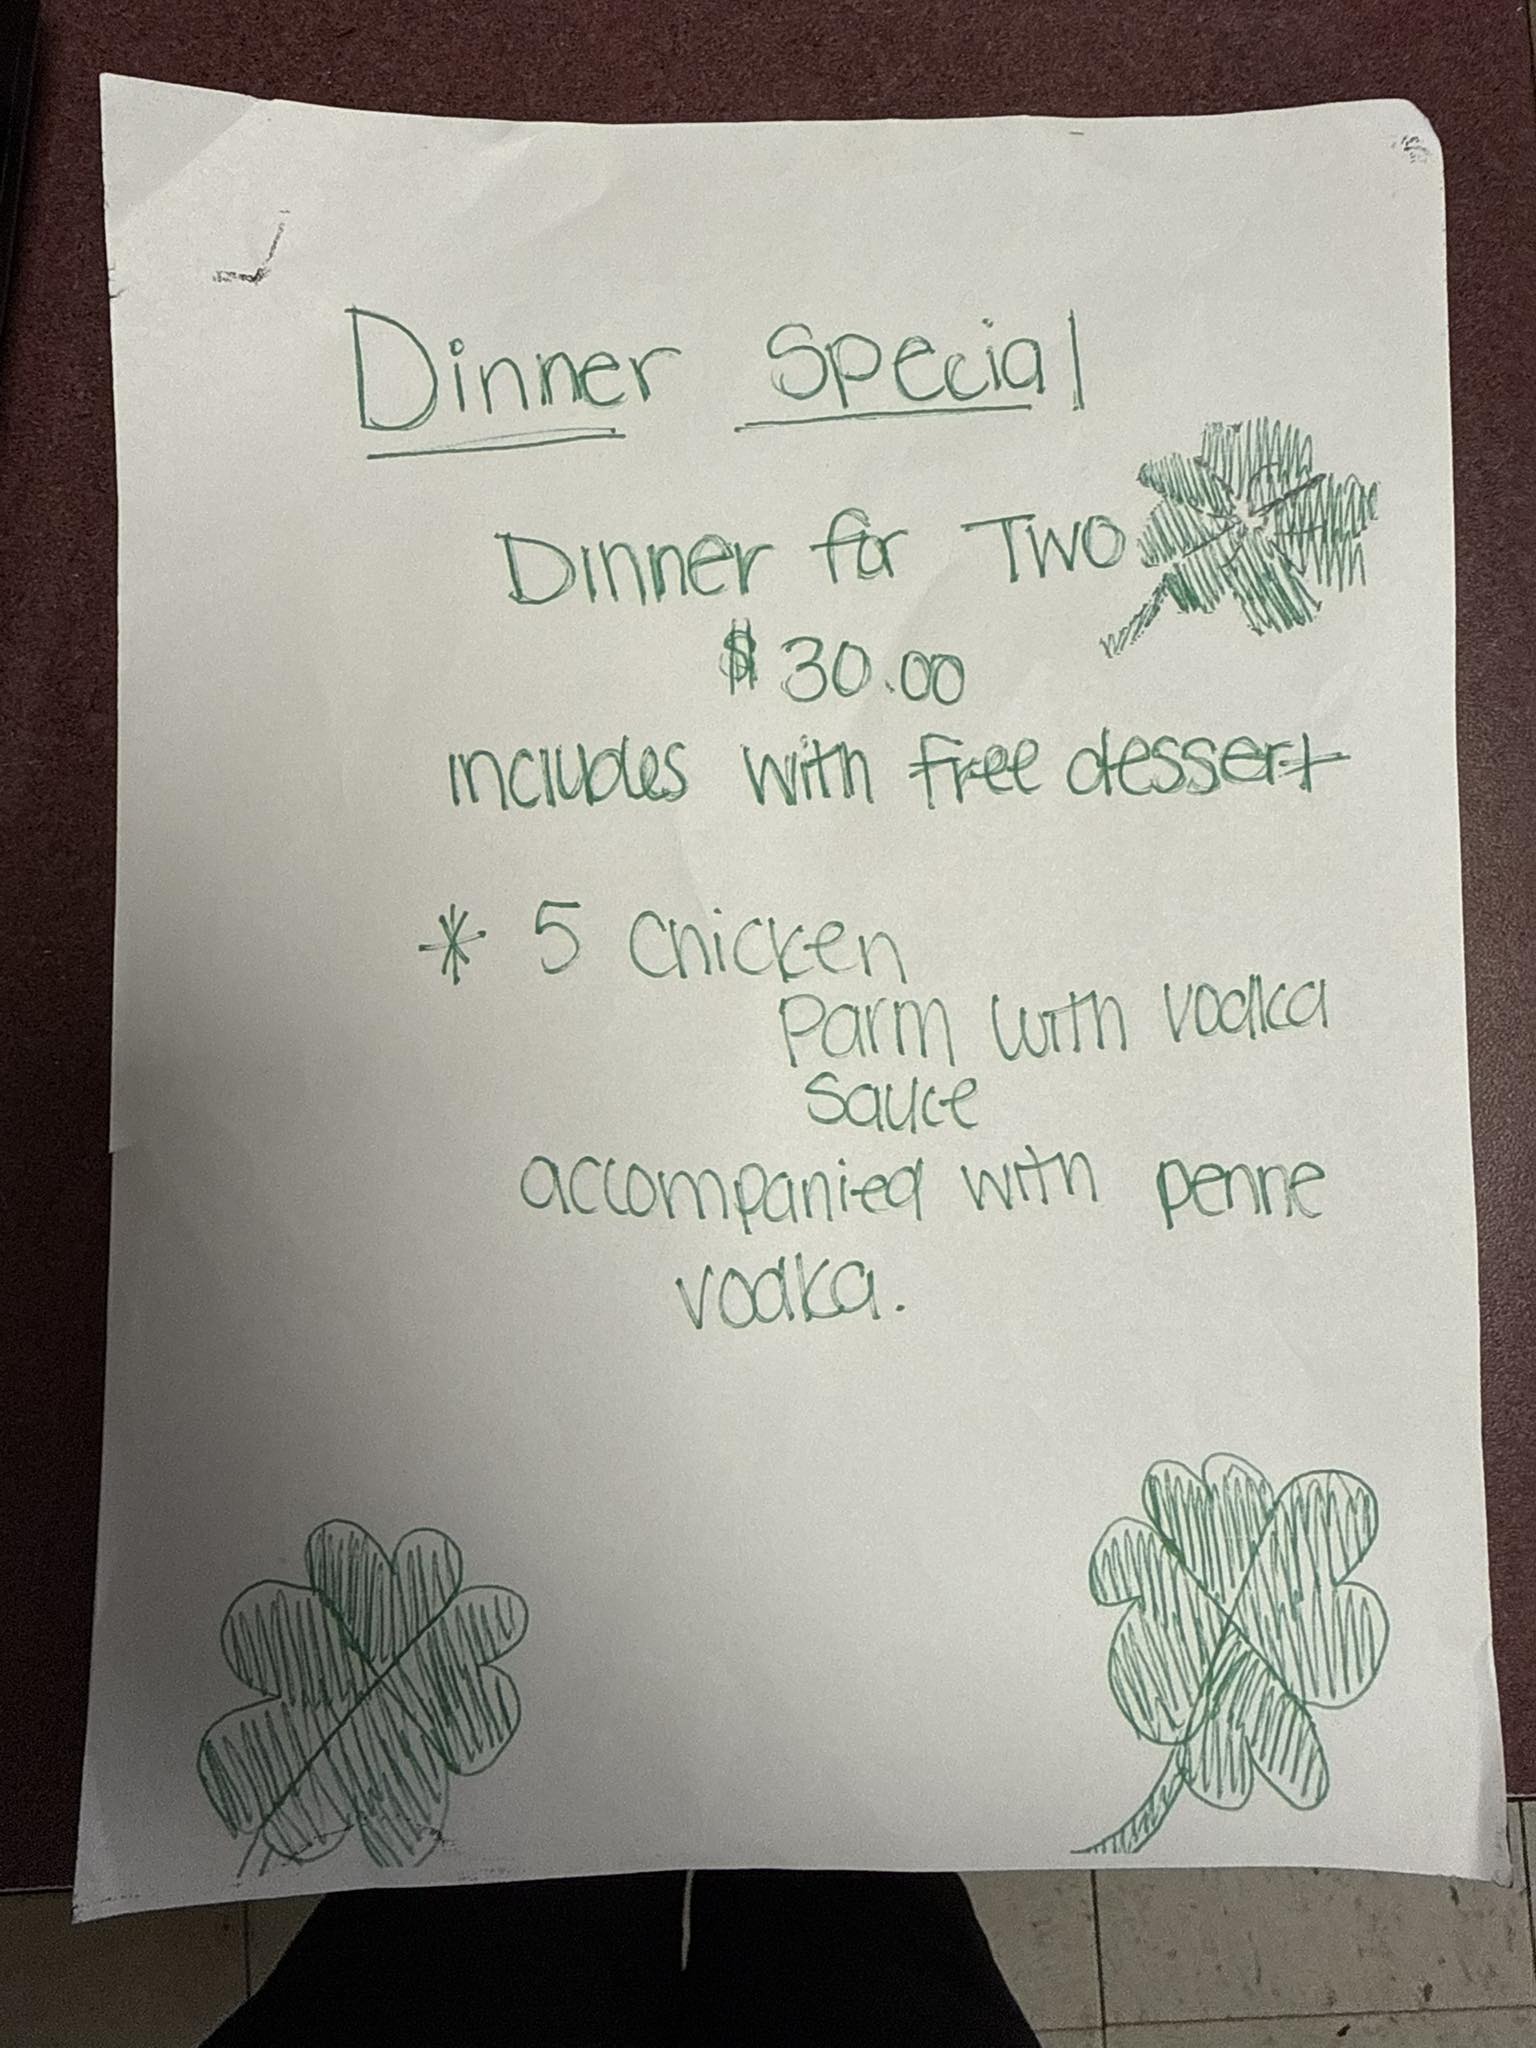 Dinner Special
Dinner for Two
$30.00
includes with free dessert
* 5 Chicken
Parm with vodka
Sauce
accompanied with penne
vodka.